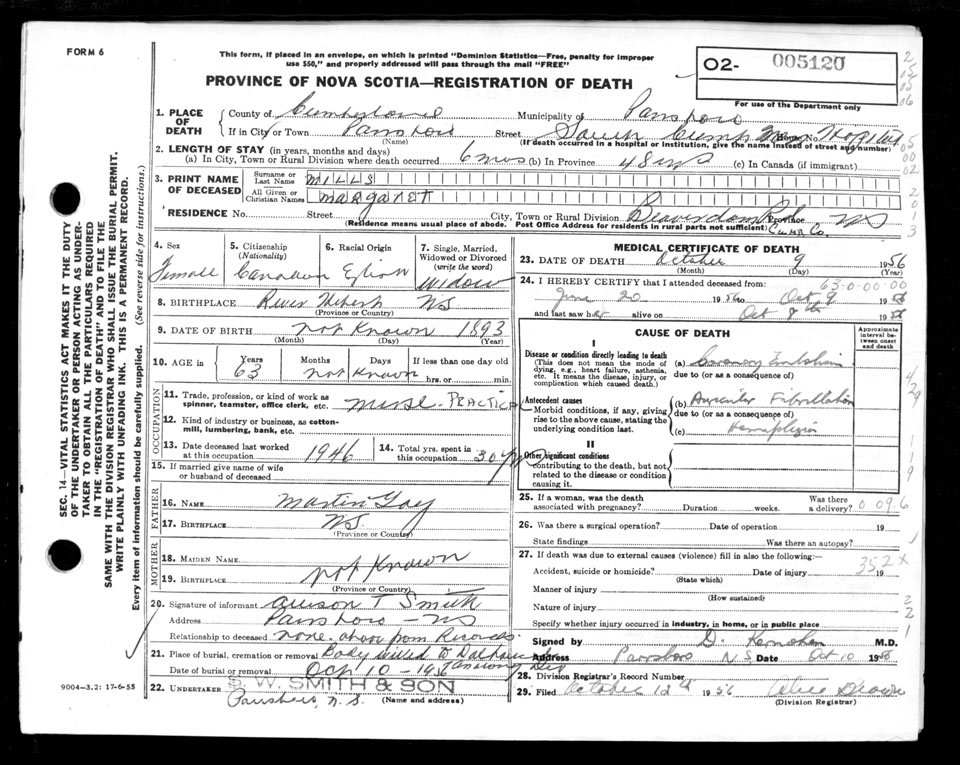 FORM 6
This form, if placed in an envelope, on which is printed "Dominion Statistics—Free, penalty for improper
use $50," and properly addressed will pass through the mail "FREE"
PROVINCE OF NOVA SCOTIA—REGISTRATION OF DEATH
O2- 005120
For use of the Department only
1. PLACE OF DEATH
County of Cumberland Municipality of Parrsboro
If in City or Town Parrsboro Street South Cumb Hospital
(Name) (If death occurred in a hospital or institution, give the name instead of street and number)
2. LENGTH OF STAY (in years, months and days)
(a) In City, Town or Rural Division where death occurred 6 mos (b) In Province 48 yrs (c) In Canada (if immigrant)
3. PRINT NAME OF DECEASED
Surname or Last Name MILLS
All Given or Christian Names MARGARET
RESIDENCE No. Street City, Town or Rural Division Province NS
Cumb Co.
(Residence means usual place of abode. Post Office Address for residents in rural parts not sufficient)
4. Sex Female
5. Citizenship (Nationality) Canadian
6. Racial Origin
7. Single, Married, Widowed or Divorced (write the word) Widow
8. BIRTHPLACE River Hebert NS
(Province or Country)
9. DATE OF BIRTH not Known 1893
(Month) (Day) (Year)
10. AGE in Years 63 Months Days not Known If less than one day old
hrs. or min.
OCCUPATION
11. Trade, profession, or kind of work as spinner, teamster, office clerk, etc. Nurse - PRACTICAL
12. Kind of industry or business, as cotton-mill, lumbering, bank, etc.
13. Date deceased last worked at this occupation 1946
14. Total yrs. spent in this occupation 30 yrs
15. If married give name of wife or husband of deceased
FATHER
16. NAME Martin Gay
17. BIRTHPLACE NS.
(Province or Country)
MOTHER
18. MAIDEN NAME not Known
19. BIRTHPLACE
(Province or Country)
20. Signature of informant T Smith
Address Parrsboro - NS
Relationship to deceased none. above from Records.
21. Place of burial, cremation or removal Body to Dalhousie
Date of burial or removal Oct 10 1956
22. UNDERTAKER S. W. SMITH & SON
Parrsboro, N.S. (Name and address)
MEDICAL CERTIFICATE OF DEATH
23. DATE OF DEATH October 9 1956
(Month) (Day) (Year)
24. I HEREBY CERTIFY that I attended deceased from: 63-0-00-00
June 20 1956 to Oct 9 1956
and last saw her alive on Oct 8th 1956
CAUSE OF DEATH
Approximate interval between onset and death
I
Disease or condition directly leading to death
(This does not mean the mode of dying, e.g., heart failure, asthenia, etc. It means the disease, injury, or complication which caused death.)
(a) Coronary Embolism
due to (or as a consequence of)
Antecedent causes
Morbid conditions, if any, giving rise to the above cause, stating the underlying condition last.
(b) Auricular Fibrillation
due to (or as a consequence of)
(c) Hemiplegia
II
Other significant conditions
contributing to the death, but not related to the disease or condition causing it.
25. If a woman, was the death associated with pregnancy? Duration weeks. Was there a delivery? 0 09.6
26. Was there a surgical operation? Date of operation 19
State findings Was there an autopsy?
27. If death was due to external causes (violence) fill in also the following:—
352x
Accident, suicide or homicide? Date of injury 19
(State which)
Manner of injury
(How sustained)
Nature of injury
Specify whether injury occurred in industry, in home, or in public place
Signed by D. Kernohan M.D.
Address Parrsboro N.S. Date Oct 10 1956
28. Division Registrar's Record Number
29. Filed October 12th 1956
(Division Registrar)
SEC. 14—VITAL STATISTICS ACT MAKES IT THE DUTY
OF THE UNDERTAKER OR PERSON ACTING AS UNDER-
TAKER TO OBTAIN ALL THE PARTICULARS REQUIRED
IN THE "REGISTRATION OF DEATH" AND TO FILE THE
SAME WITH THE DIVISION REGISTRAR WHO SHALL ISSUE THE BURIAL PERMIT.
WRITE PLAINLY WITH UNFADING INK. THIS IS A PERMANENT RECORD.
Every item of information should be carefully supplied. (See reverse side for instructions.)
9004—3.2: 17-6-55